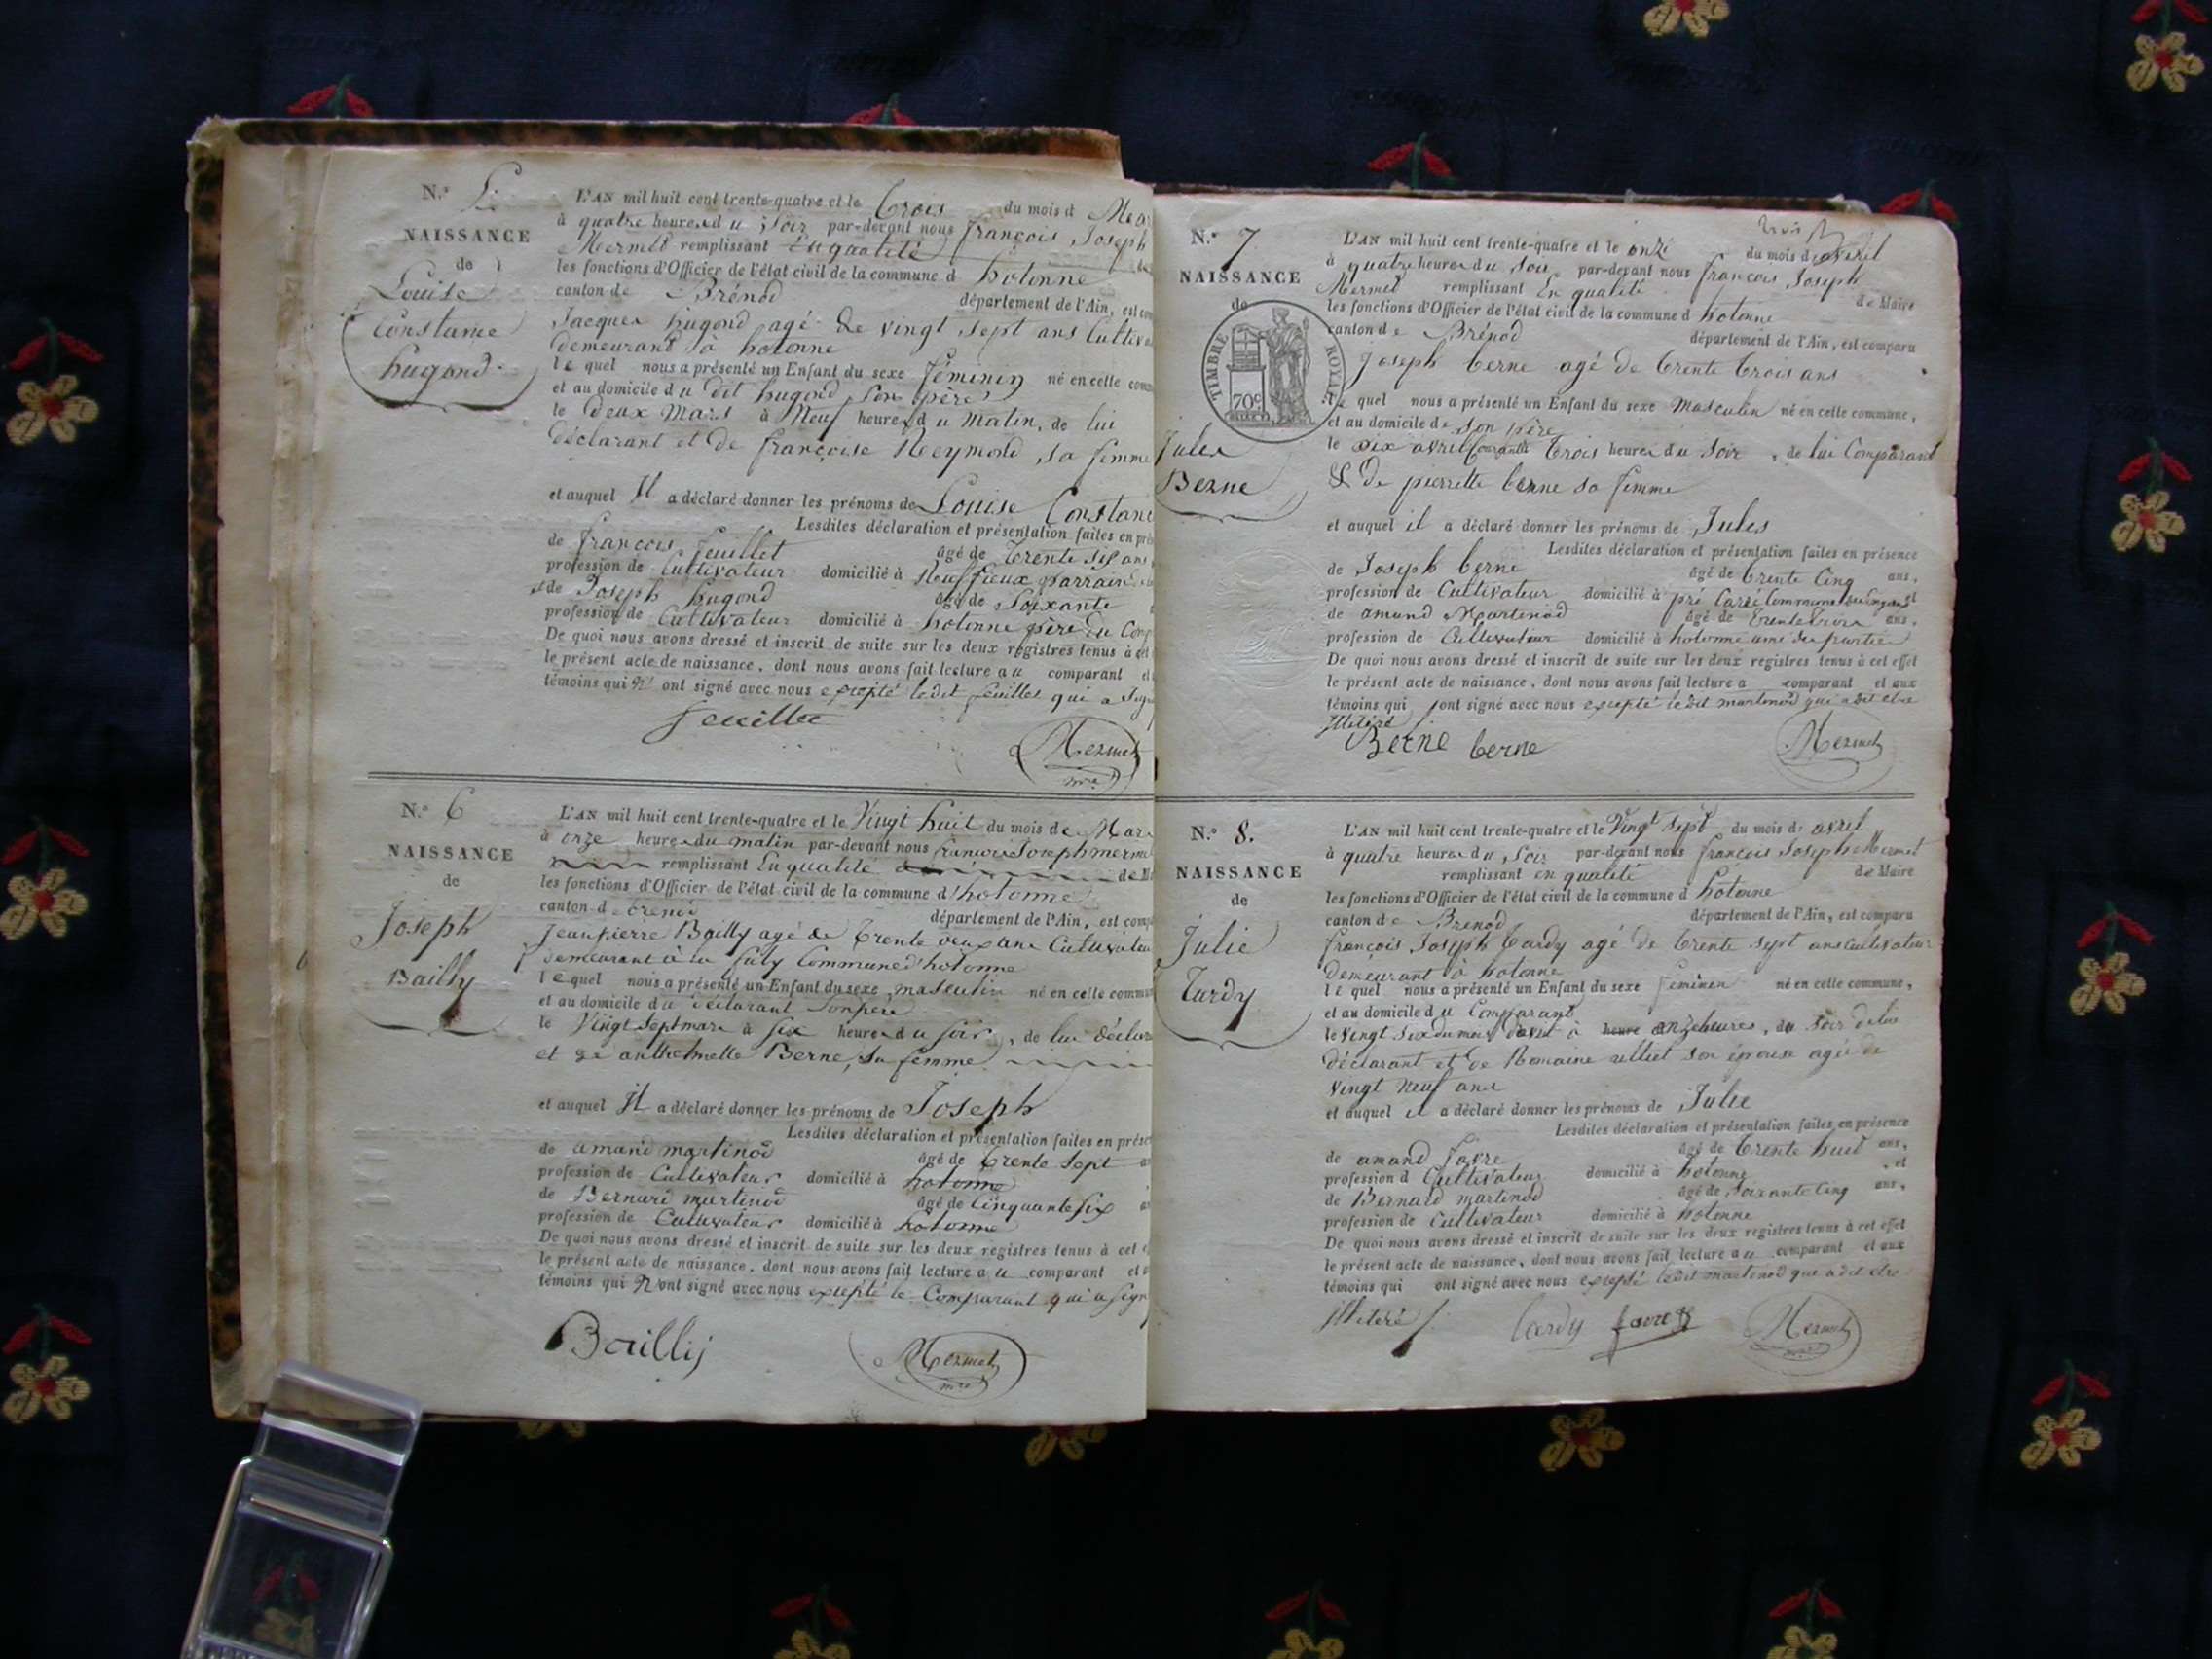 N.° 5.
NAISSANCE
de
Louise
Constance
hugond
L'AN mil huit cent trente-quatre et le trois du mois d Mar
à quatre heures du Soir par-devant nous françois Joseph
Mermet remplissant En qualité de
les fonctions d'Officier de l'état civil de la commune d hotonne
canton de Brénod département de l'Ain, est com
Jacques hugond agé de vingt sept ans Cultiva
demeurant à hotonne
le quel nous a présenté un Enfant du sexe féminin né en celle comm
et au domicile du dit hugond son père
le deux Mars à Neuf heures du matin, de lui
déclarant et de françoise Reymond, sa femme
et auquel Il a déclaré donner les prénoms de Louise Constanc
Lesdites déclaration et présentation faites en pré
de françois feuillet âgé de trente six ans
profession de Cultivateur domicilié à parrain
et de Joseph hugond âgé de Soixante
profession de Cultivateur domicilié à hotonne père du Comp
De quoi nous avons dressé et inscrit de suite sur les deux registres tenus à cet
le présent acte de naissance, dont nous avons fait lecture au comparant et
témoins qui n' ont signé avec nous excepté ledit feuillet qui a sign
feuillet
Mermet
mre
N.° 6
NAISSANCE
de
Joseph
Bailly
L'AN mil huit cent trente-quatre et le Vingt huit du mois de Mar
à onze heures du matin par-devant nous françois Joseph merme
remplissant En qualité de M
les fonctions d'Officier de l'état civil de la commune d'hotonne
canton de brenod département de l'Ain, est comp
Jean pierre Bailly agé de trente deux ans Cultivateu
demeurant à la Commune d'hotonne
le quel nous a présenté un Enfant du sexe masculin né en celle commun
et au domicile du déclarant son père
le Vingt sept mars à six heures du soir, de lui déclara
et de anthelmette Berne, sa femme
et auquel Il a déclaré donner les prénoms de Joseph
Lesdites déclaration et présentation faites en prése
de amand martinod âgé de trente sept an
profession de Cultivateur domicilié à hotonne
de Bernard martinod âgé de Cinquante six an
profession de Cultivateur domicilié à hotonne
De quoi nous avons dressé et inscrit de suite sur les deux registres tenus à cet e
le présent acte de naissance, dont nous avons fait lecture au comparant et a
témoins qui n'ont signé avec nous excepté le Comparant qui a sign
Bailly
Mermet
mre
N.° 7
NAISSANCE
de
TIMBRE ROYAL
70c
Jules
Berne
L'AN mil huit cent trente-quatre et le onze du mois d'avril
à quatre heures du Soir par-devant nous françois Joseph
Mermet remplissant En qualité de Maire
les fonctions d'Officier de l'état civil de la commune d hotonne
canton de Brénod département de l'Ain, est comparu
Joseph berne agé de trente trois ans
le quel nous a présenté un Enfant du sexe Masculin né en celle commune,
et au domicile de son père
le dix avril Courant à trois heures du Soir, de lui Comparant
& De pierrette berne sa femme
et auquel il a déclaré donner les prénoms de Jules
Lesdites déclaration et présentation faites en présence
de Joseph berne âgé de trente Cinq ans,
profession de Cultivateur domicilié à pré Carré Commune et
de amand Martinod âgé de trente trois ans,
profession de Cultivateur domicilié à hotonne ami de partie
De quoi nous avons dressé et inscrit de suite sur les deux registres tenus à cet effet
le présent acte de naissance, dont nous avons fait lecture a comparant et aux
témoins qui ont signé avec nous excepté le dit martinod qui a dit etre
illitéré
Berne berne
Mermet
N.° 8.
NAISSANCE
de
Julie
Tardy
L'AN mil huit cent trente-quatre et le Vingt sept du mois d' avril
à quatre heures du Soir par-devant nous françois Joseph Mermet
remplissant en qualité de Maire
les fonctions d'Officier de l'état civil de la commune d hotonne
canton de Brenod département de l'Ain, est comparu
françois Joseph tardy agé de trente sept ans cultivateur
demeurant à hotonne
le quel nous a présenté un Enfant du sexe féminin né en celle commune,
et au domicile du Comparant
le vingt six du mois d'avril à heure onze heures, du soir de lui
déclarant et de Romaine son épouse agée de
vingt neuf ans
et auquel il a déclaré donner les prénoms de Julie
Lesdites déclaration et présentation faites en présence
de amand favre âgé de trente huit ans,
profession d Cultivateur domicilié à hotonne, et
de Bernard martinod âgé de soixante Cinq ans,
profession de Cultivateur domicilié à hotonne
De quoi nous avons dressé et inscrit de suite sur les deux registres tenus à cet effet
le présent acte de naissance, dont nous avons fait lecture au comparant et aux
témoins qui ont signé avec nous excepté ledit martinod qui a dit etre
illiteré
tardy favre
Mermet